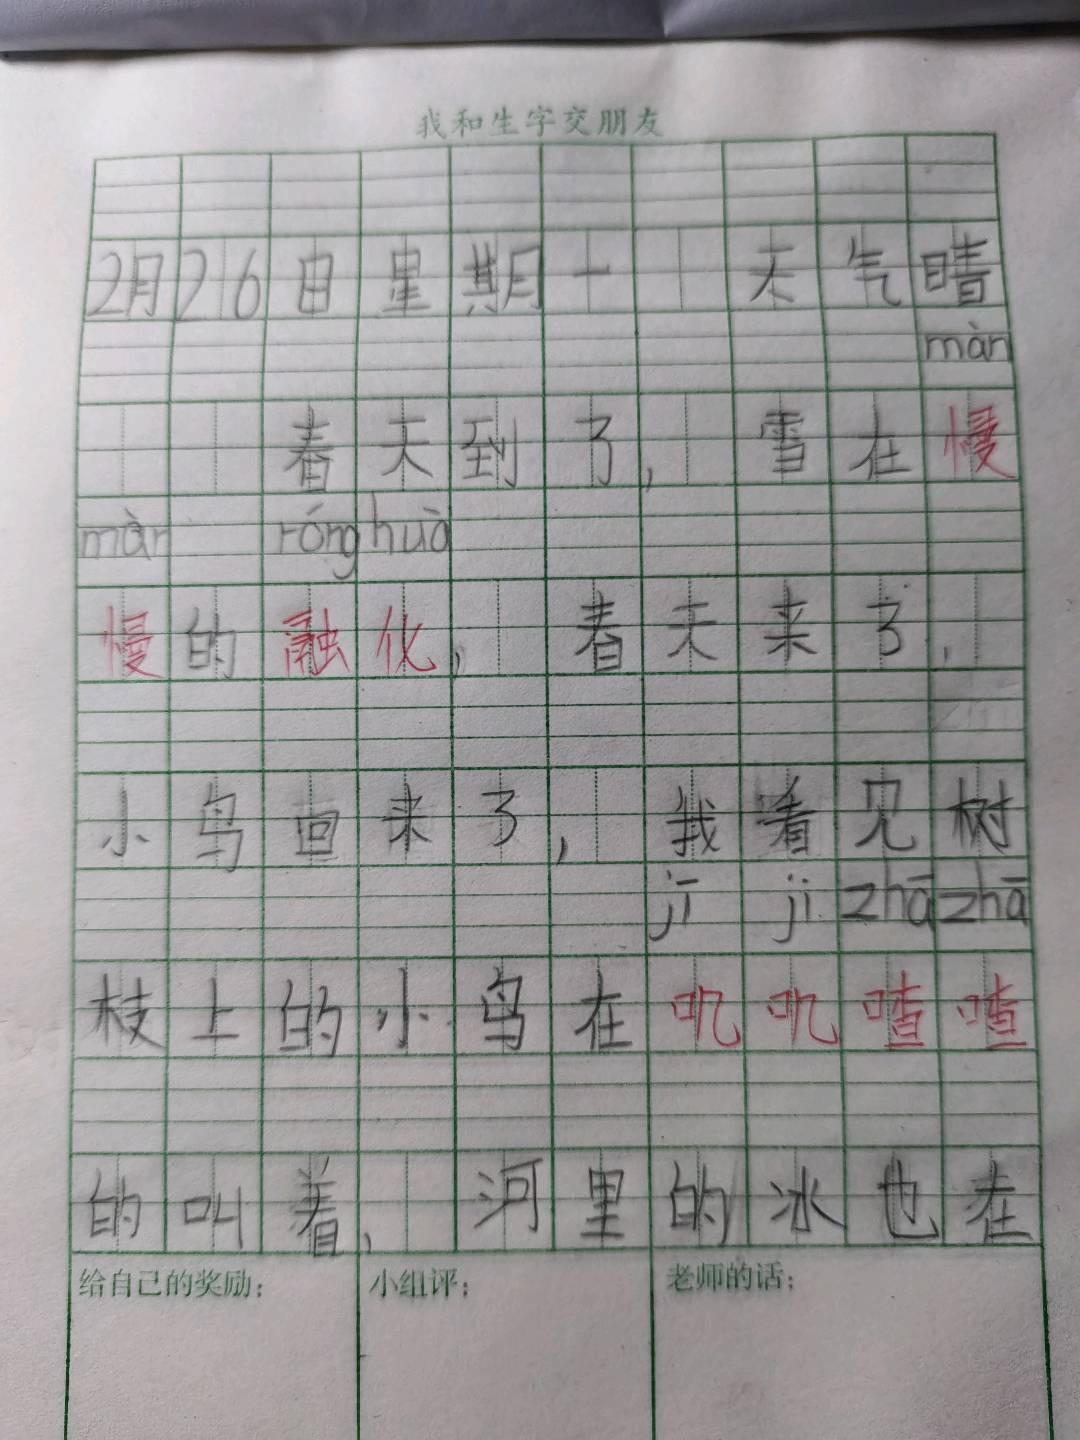 我和生字交朋友
2月26日星期一 天气晴
màn
春天到了, 雪在慢
màn róng huà
慢的融化, 春天来了,
小鸟回来了, 我看见树
jī ji zhā zhā
枝上的小鸟在叽叽喳喳
的叫着, 河里的冰也在
给自己的奖励: 小组评: 老师的话: